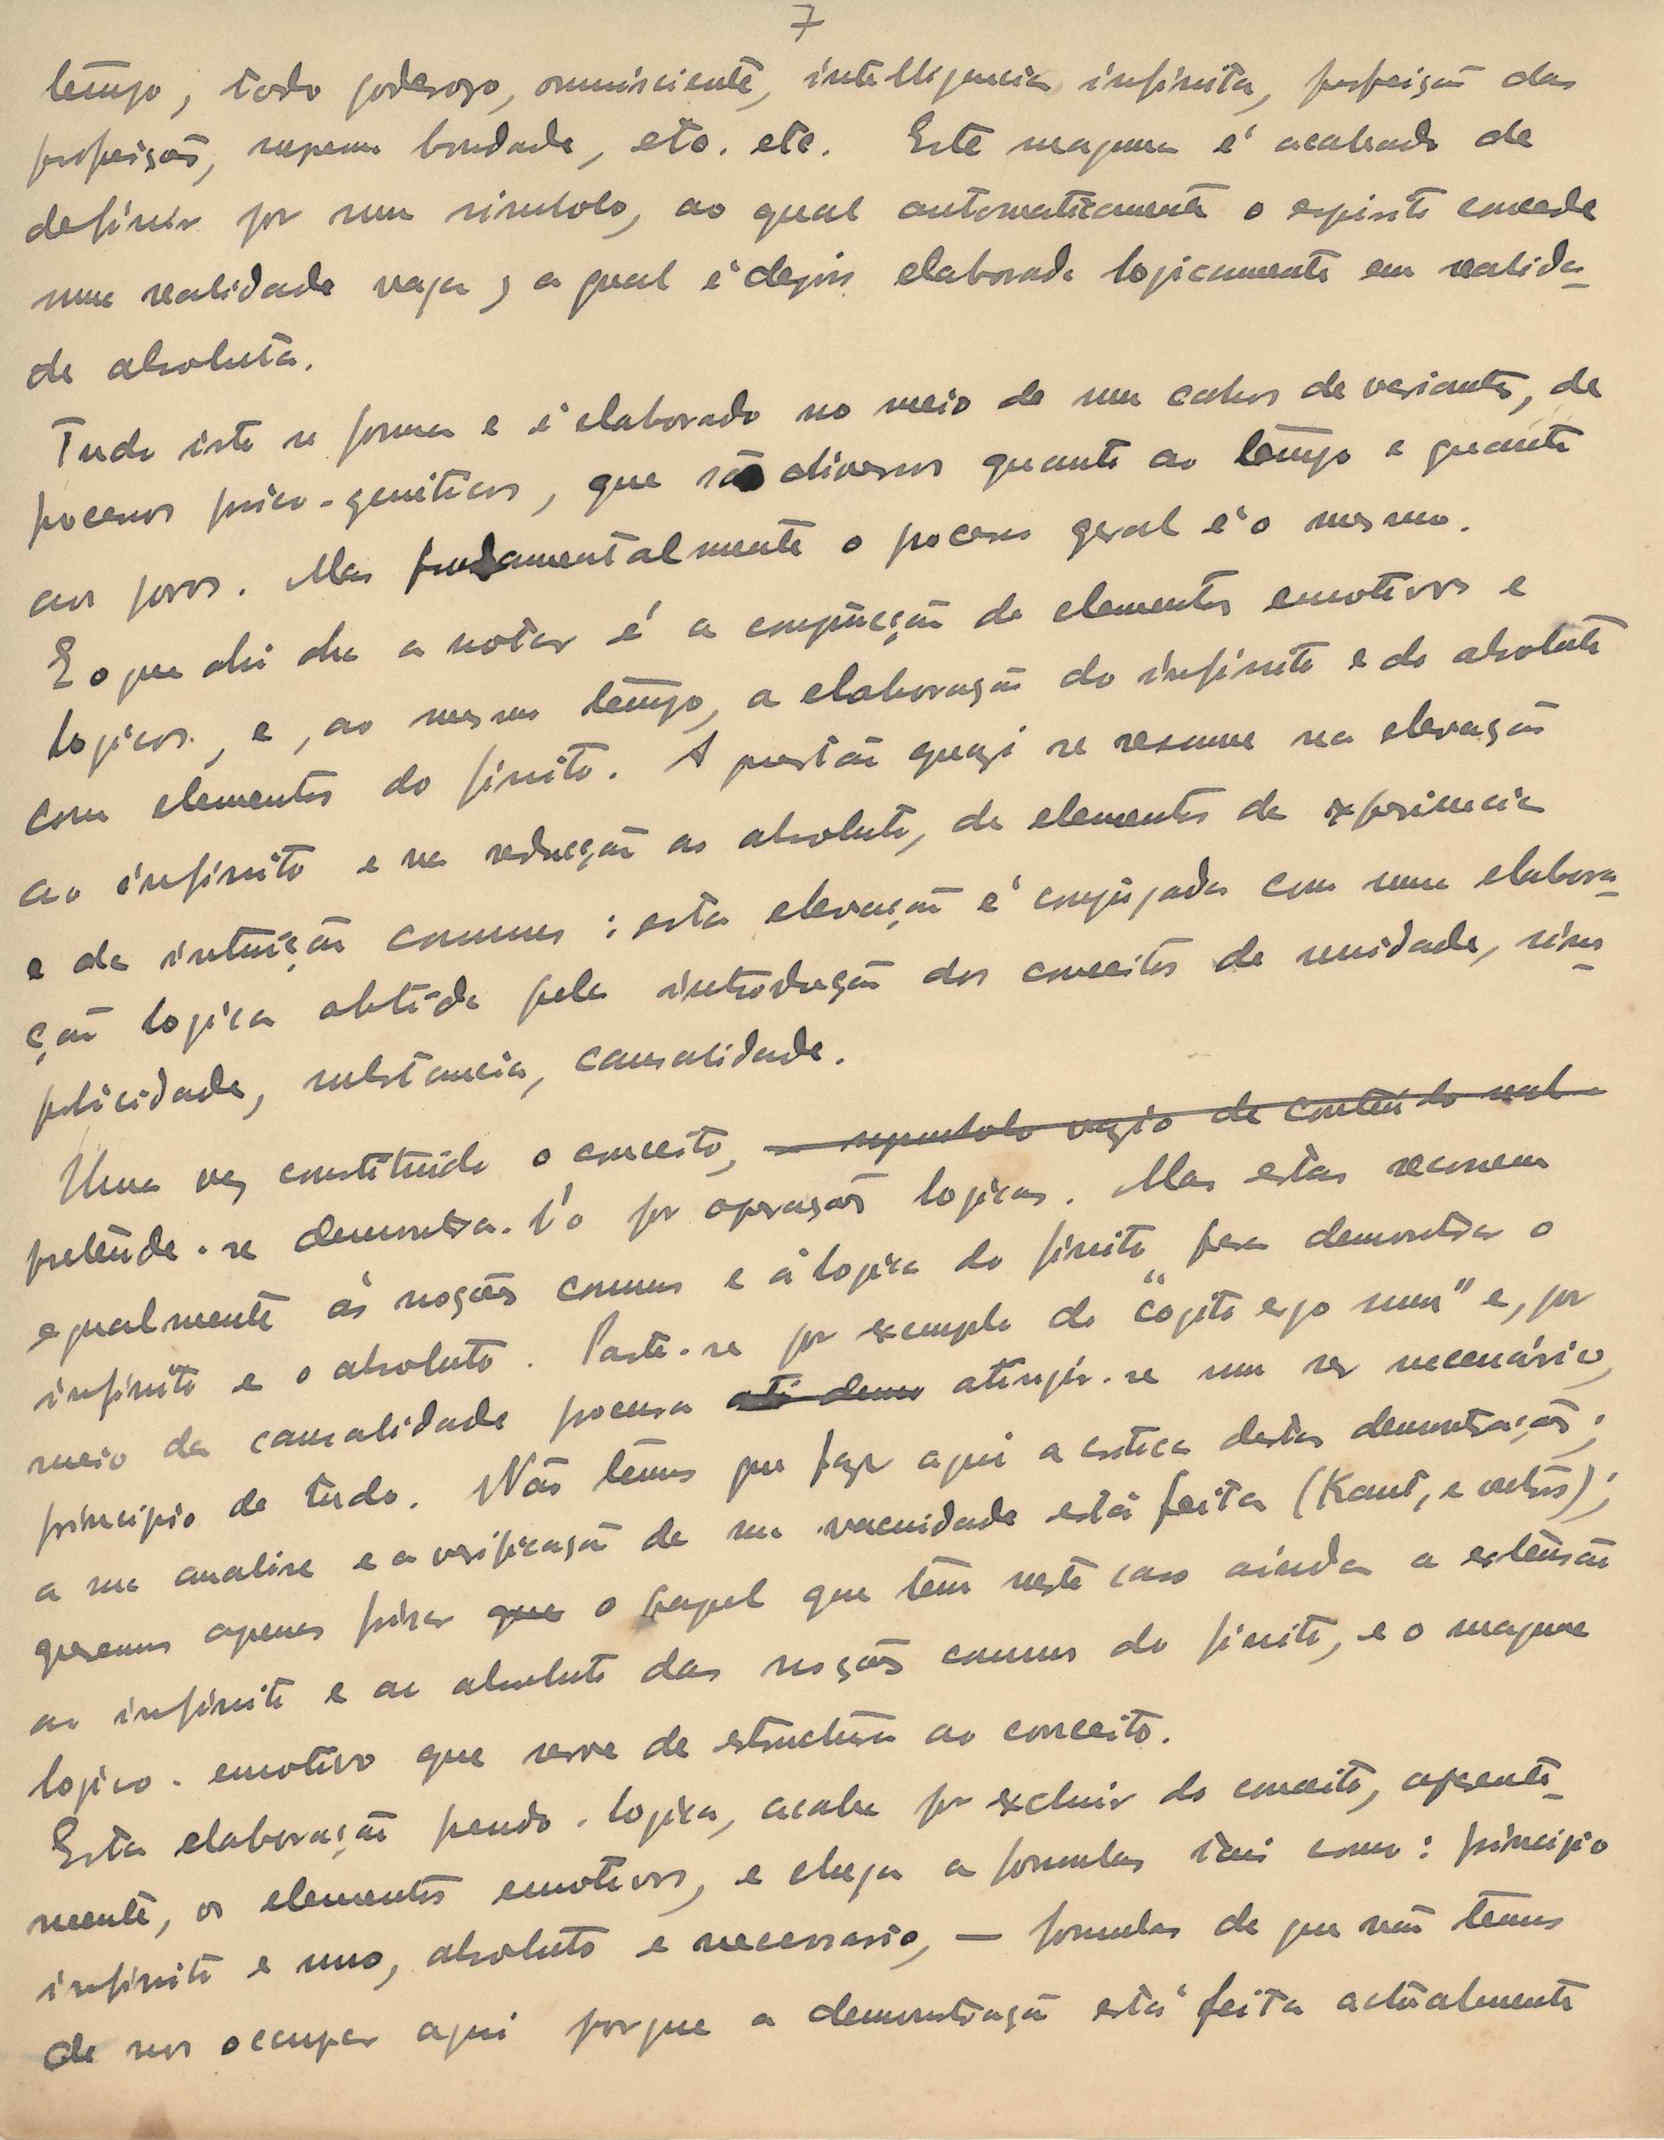 7
tempo, todo poderoso, omnisciente, intelligencia infinita, perfeição das
perfeições, suprema bondade, etc. etc. Este magma é acabado de
definir por um simbolo, ao qual automaticamente o espirito concede
uma realidade vaga, a qual é depois elaborada logicamente em realida-
de absoluta.
Tudo isto se forma e é elaborado no meio de um cahos de variantes, de
processos psico-geneticos, que são diversos quanto ao tempo e quanto
aos povos. Mas fundamentalmente o processo geral é o mesmo.
E o que ahi ha a notar é a conjuncção de elementos emotivos e
logicos, e, ao mesmo tempo, a elaboração do infinito e do absoluto
com elementos do finito. A questão quasi se resume na elevação
ao infinito e na reducção ao absoluto, de elementos da experiencia
e da intuição comuns: esta elevação é conjugada com uma elabora-
ção logica obtida pela introdução dos conceitos de unidade, sim-
plicidade, substancia, causalidade.
Uma vez constituido o conceito, — symbolo vazio de conteúdo real —
pretende-se demonstra-l'o por operações logicas. Mas estas recorrem
egualmente ás noções comuns e á logica do finito para demonstrar o
infinito e o absoluto. Parte-se por exemplo do "cogito ergo sum" e, por
meio da causalidade procura até demo atingir-se um ser necessário,
principio de tudo. Não temos que fazer aqui a critica destas demonstrações;
a sua analise e a verificação de sua vacuidade está feita (Kant, e outros);
queremos apenas frisar que o papel que tem neste caso ainda a extensão
ao infinito e ao absoluto das noções comuns do finito, e o magma
logico-emotivo que serve de estructura ao conceito.
Esta elaboração pseudo-logica, acaba por excluir do conceito, aparente-
mente, os elementos emotivos, e chega a formulas tais como: principio
infinito e uno, absoluto e necessario, — formulas de que não temos
de nos occupar aqui porque a demonstração está feita actualmente